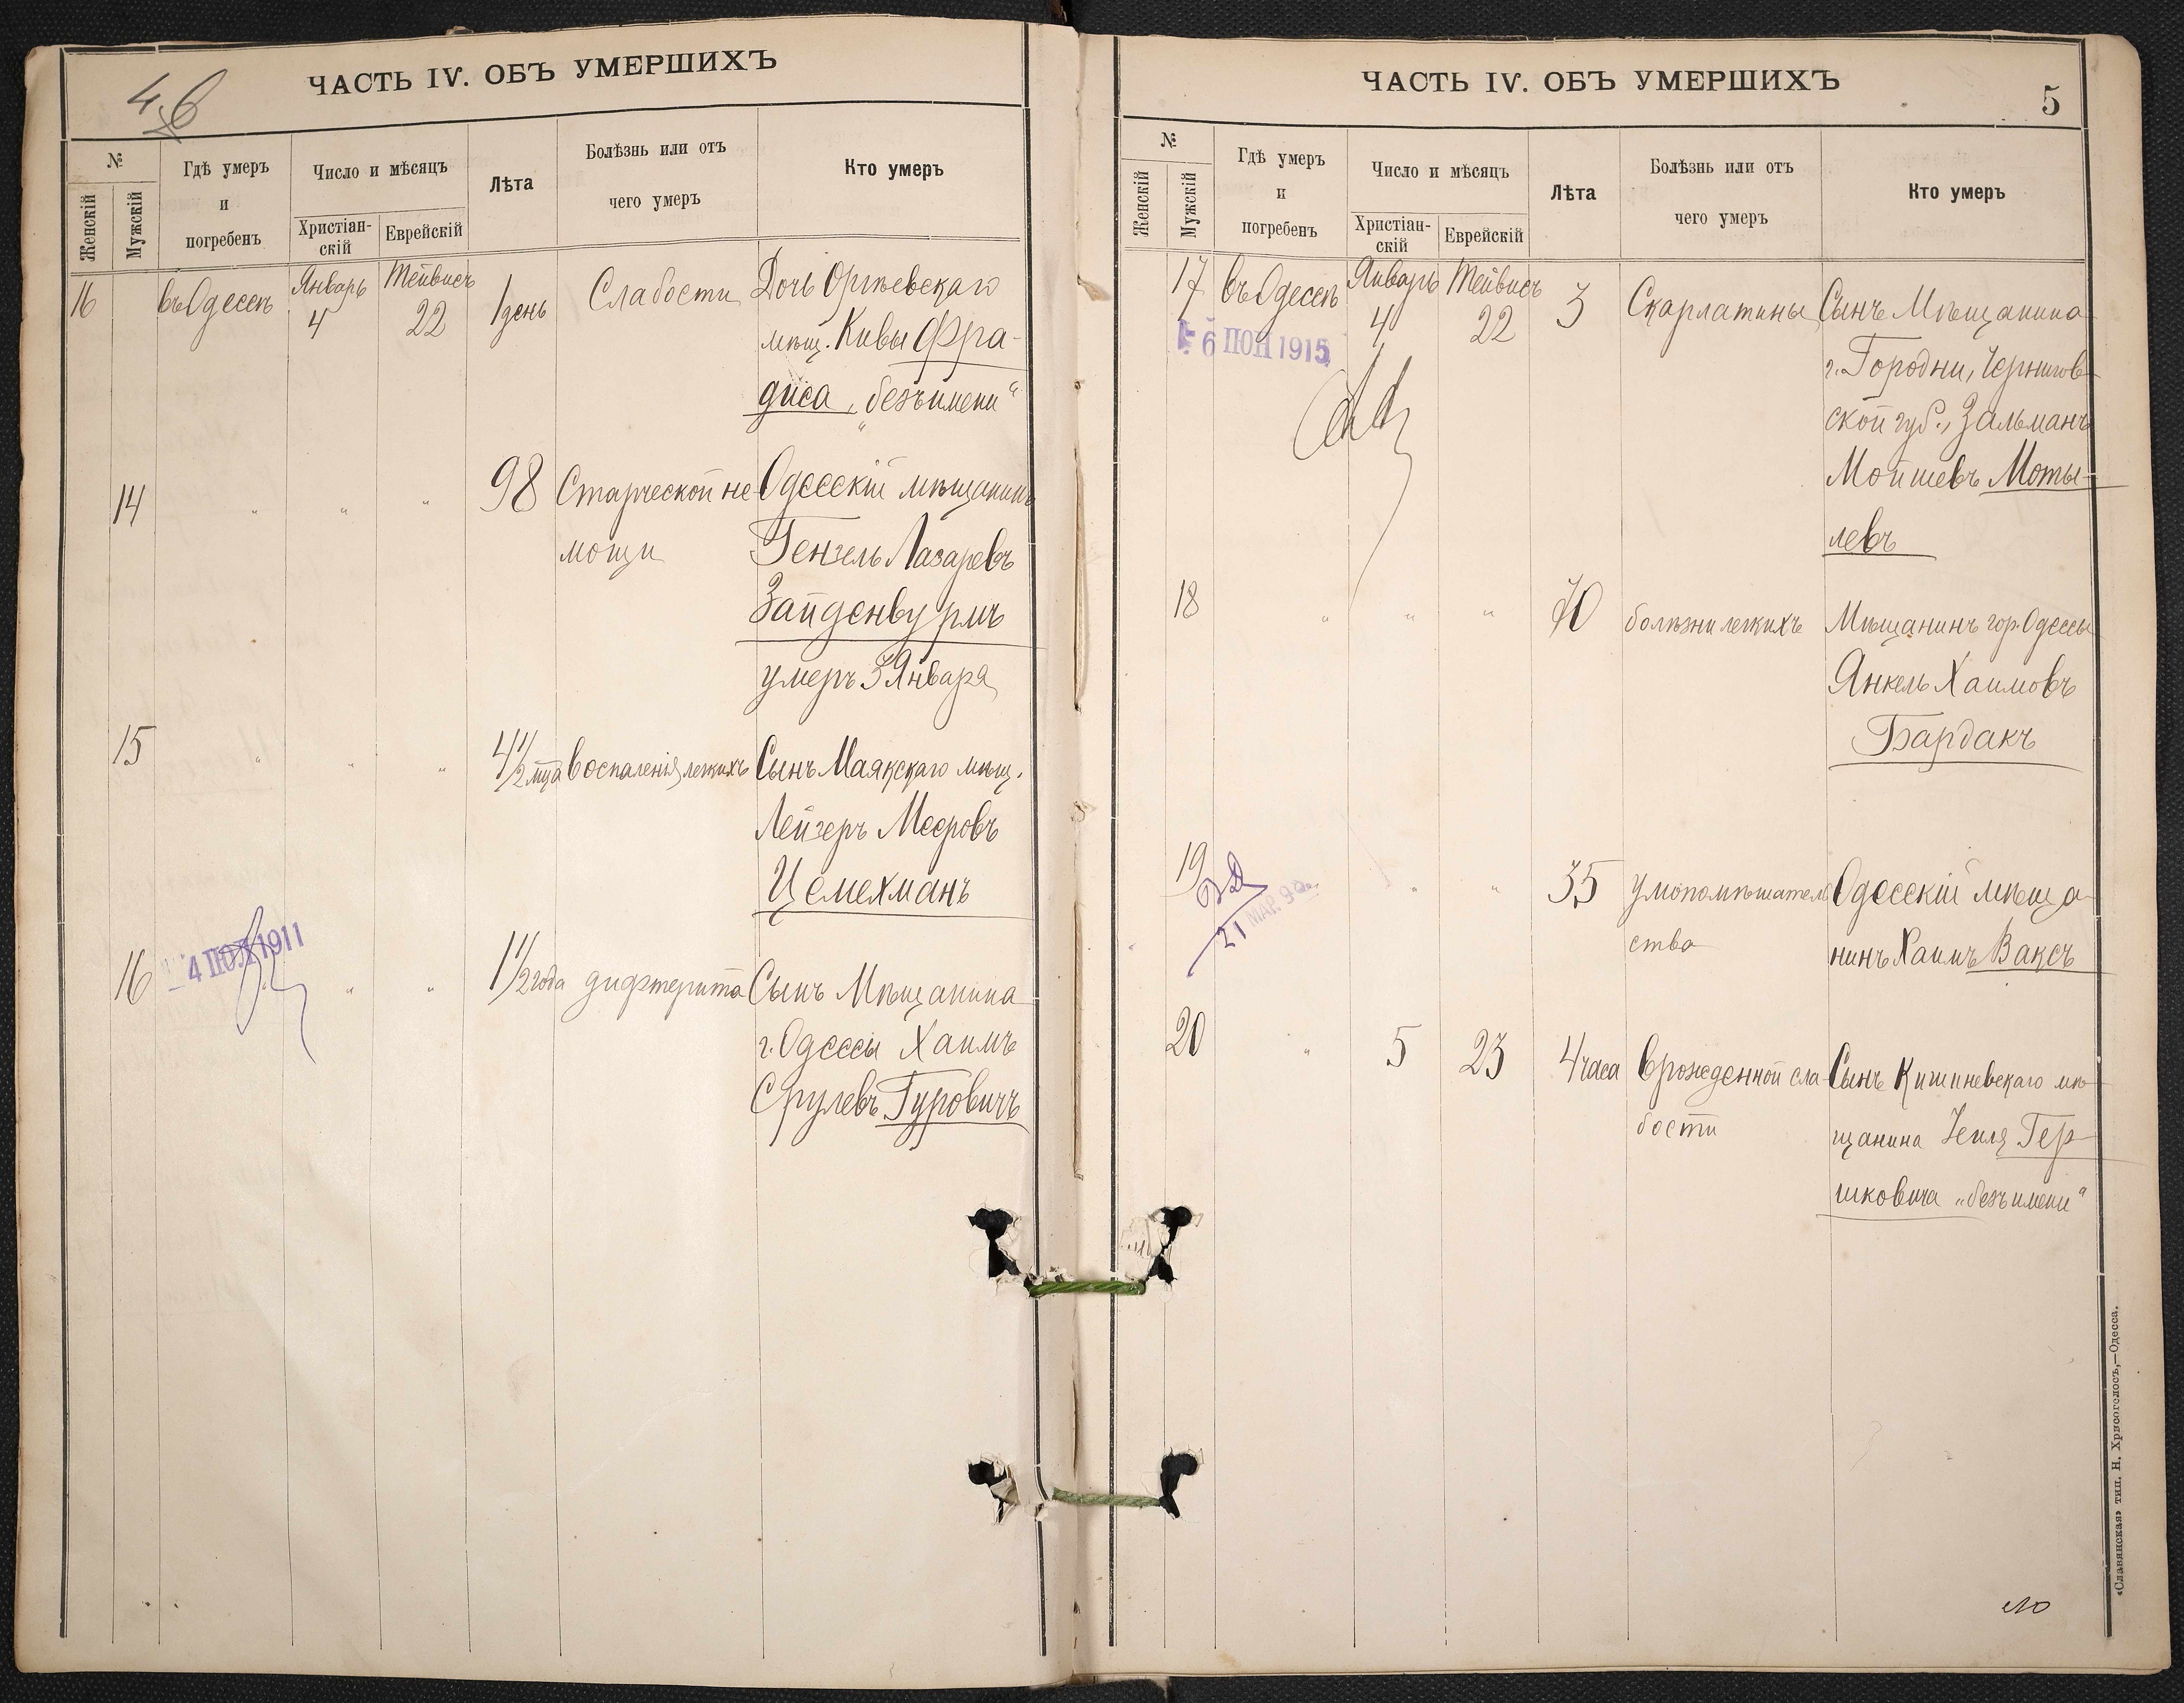 ЧАСТЬ IV. ОБЪ УМЕРШИХЪ
№
Женскій
Мужскій
Гдѣ умеръ
и
погребенъ
Число и мѣсяцъ
Христіан-
скій
Еврейскій
Лѣта
Болѣзнь или отъ
чего умеръ
Кто умеръ
16 въ Одессѣ Январь 4 Тейвисъ 22 1 день Слабости Дочь Оргѣевскаго
мѣщ. Кивы Фра-
диса „безъ имени“
14 " " " 98 Старческой не- Одесскій мѣщанинъ
мощи Гензель Лазаревъ
Зайденвурмъ
умеръ 3 Января
15 " " " 4 1/2 мца Воспаленія легкихъ Сынъ Маякскаго мѣщ.
Лейзеръ Мееровъ
Цемехманъ
4 ІЮЛ 1911
16 " " " 1 1/2 года дифтерита Сынъ Мѣщанина
г. Одессы Хаимъ
Срулевъ Гуровичъ
ЧАСТЬ IV. ОБЪ УМЕРШИХЪ
5
№
Женскій
Мужскій
Гдѣ умеръ
и
погребенъ
Число и мѣсяцъ
Христіан-
скій
Еврейскій
Лѣта
Болѣзнь или отъ
чего умеръ
Кто умеръ
17 въ Одессѣ Январь 4 Тейвисъ 22 3 Скарлатины Сынъ Мѣщанина
6 ІЮН 1915
г. Городни, Чернигов-
ской губ., Зальманъ
Мойшевъ Моты-
левъ
18 " " " 70 болѣзни легкихъ Мѣщанинъ гор. Одессы
Янкель Хаимовъ
Бардакъ
19 " " 35 умопомѣшатель Одесскій мѣща-
21 МАР
ства нинъ Хаимъ Ваксъ
20 " 5 23 4 часа Врожденной сла- Сынъ Кишиневскаго мѣ-
бости щанина Гер-
шковича „безъ имени“
«Славянская» тип. Н. Хрисогелосъ,—Одесса.